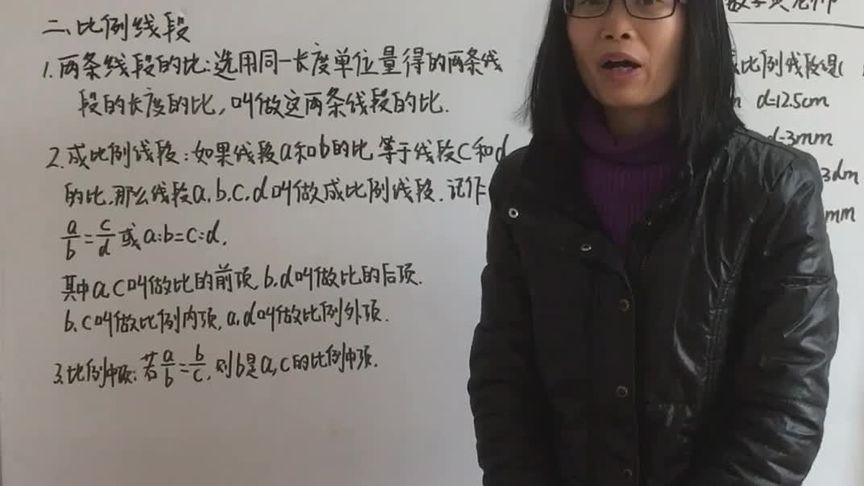 二、比例线段
1.两条线段的比:选用同一长度单位量得的两条线
段的长度的比,叫做这两条线段的比.
2.成比例线段:如果线段a和b的比等于线段c和d
的比,那么线段a,b,c,d叫做成比例线段.记作
a/b=c/d或a:b=c:d.
其中a,c叫做比的前项,b,d叫做比的后项.
b,c叫做比例内项,a,d叫做比例外项.
3.比例中项:若a/b=b/c,则b是a,c的比例中项.
比例线段是(
d=12.5cm
d=3mm
3dm
mm